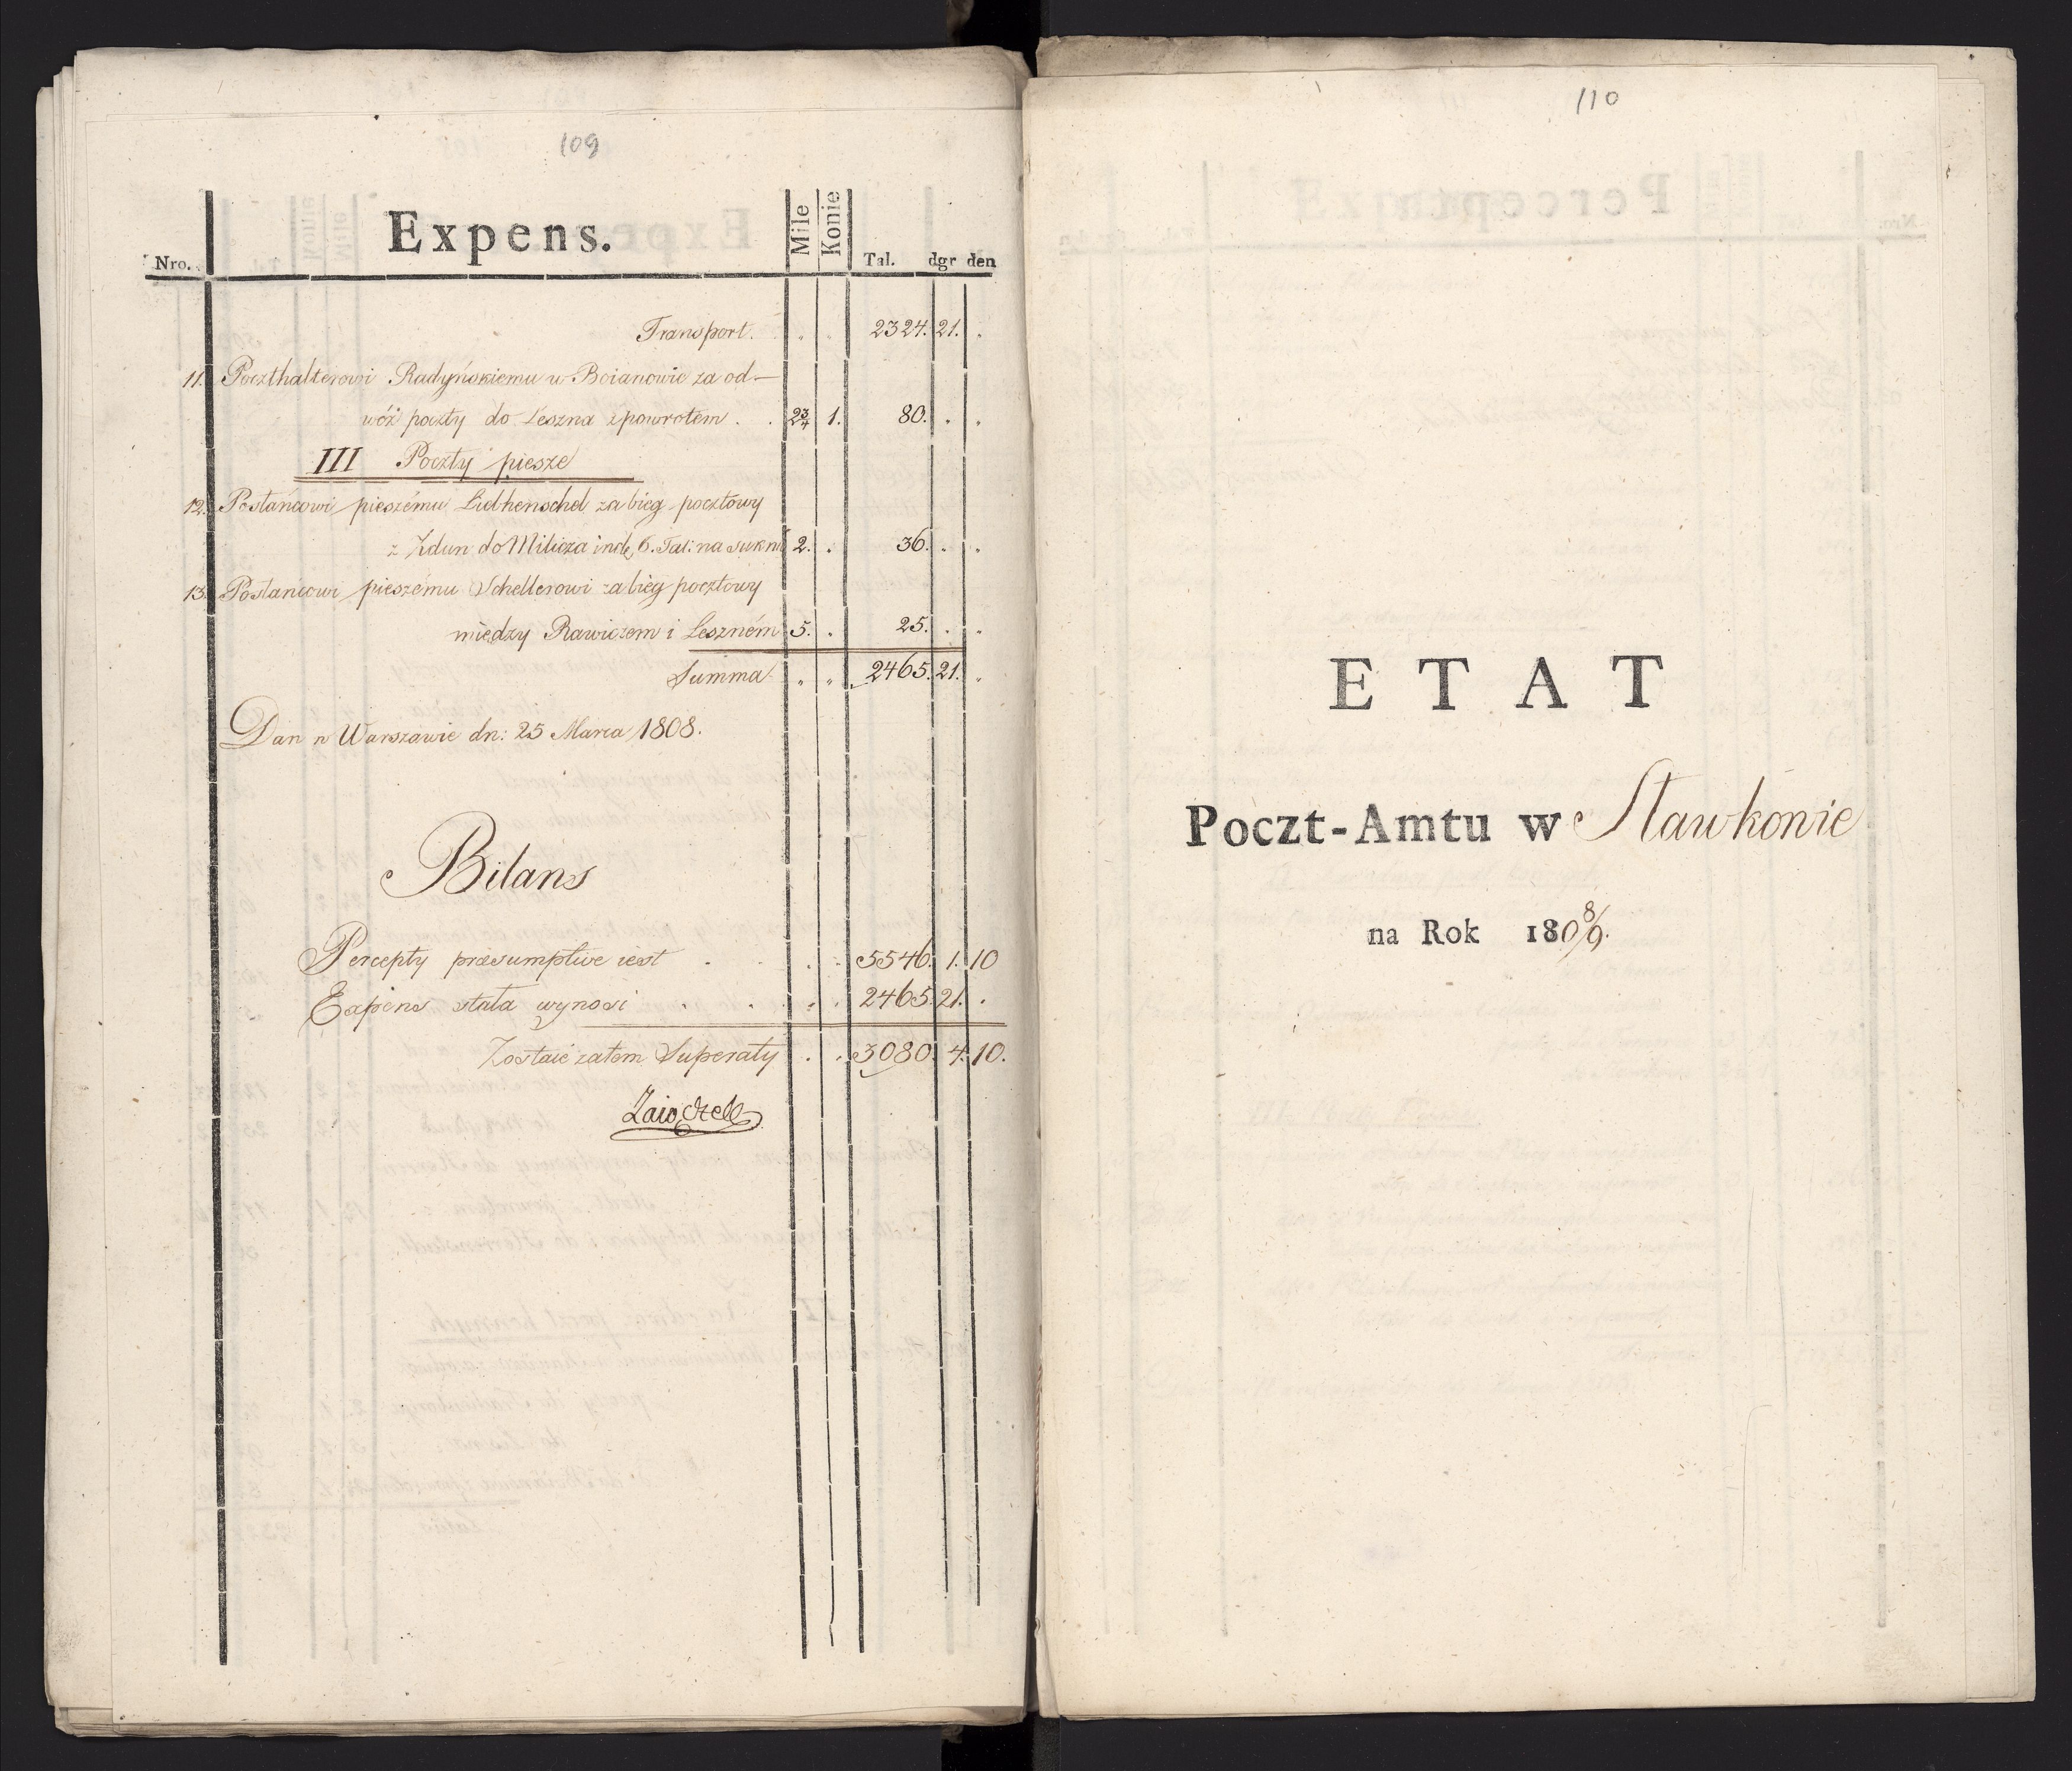 109
Nro. Expens. Mile Konie Tal. dgr den
Transport. 2324. 21.
11. Poczthalterowi Radyńskiemu w Boianowie za od-
wóz poczty do Leszna z powrotem . . 2 3/4 1. 80. . .
III Poczty piesze
12. Posłańcowi pieszému Liebhenschel za bieg pocztowy
z Zdun do Milicza incl. 6. Tal: na suknię 2. . 36. . .
13. Posłańcowi pieszému Schellerowi za bieg pocztowy
między Rawiczem i Leszném 5. . 25. . .
Summa 2465. 21.
Dan w Warszawie dn: 25 Marca 1808.
Bilans
Percepty præsumptive iest . . . . 5546. 1. 10
Expens stała wynosi . . . . 2465. 21. .
Zostaie zatem Superaty . . 3080. 4. 10.
Zaiączek
110
ETAT
Poczt-Amtu w Sławkowie
na Rok 1808/9.